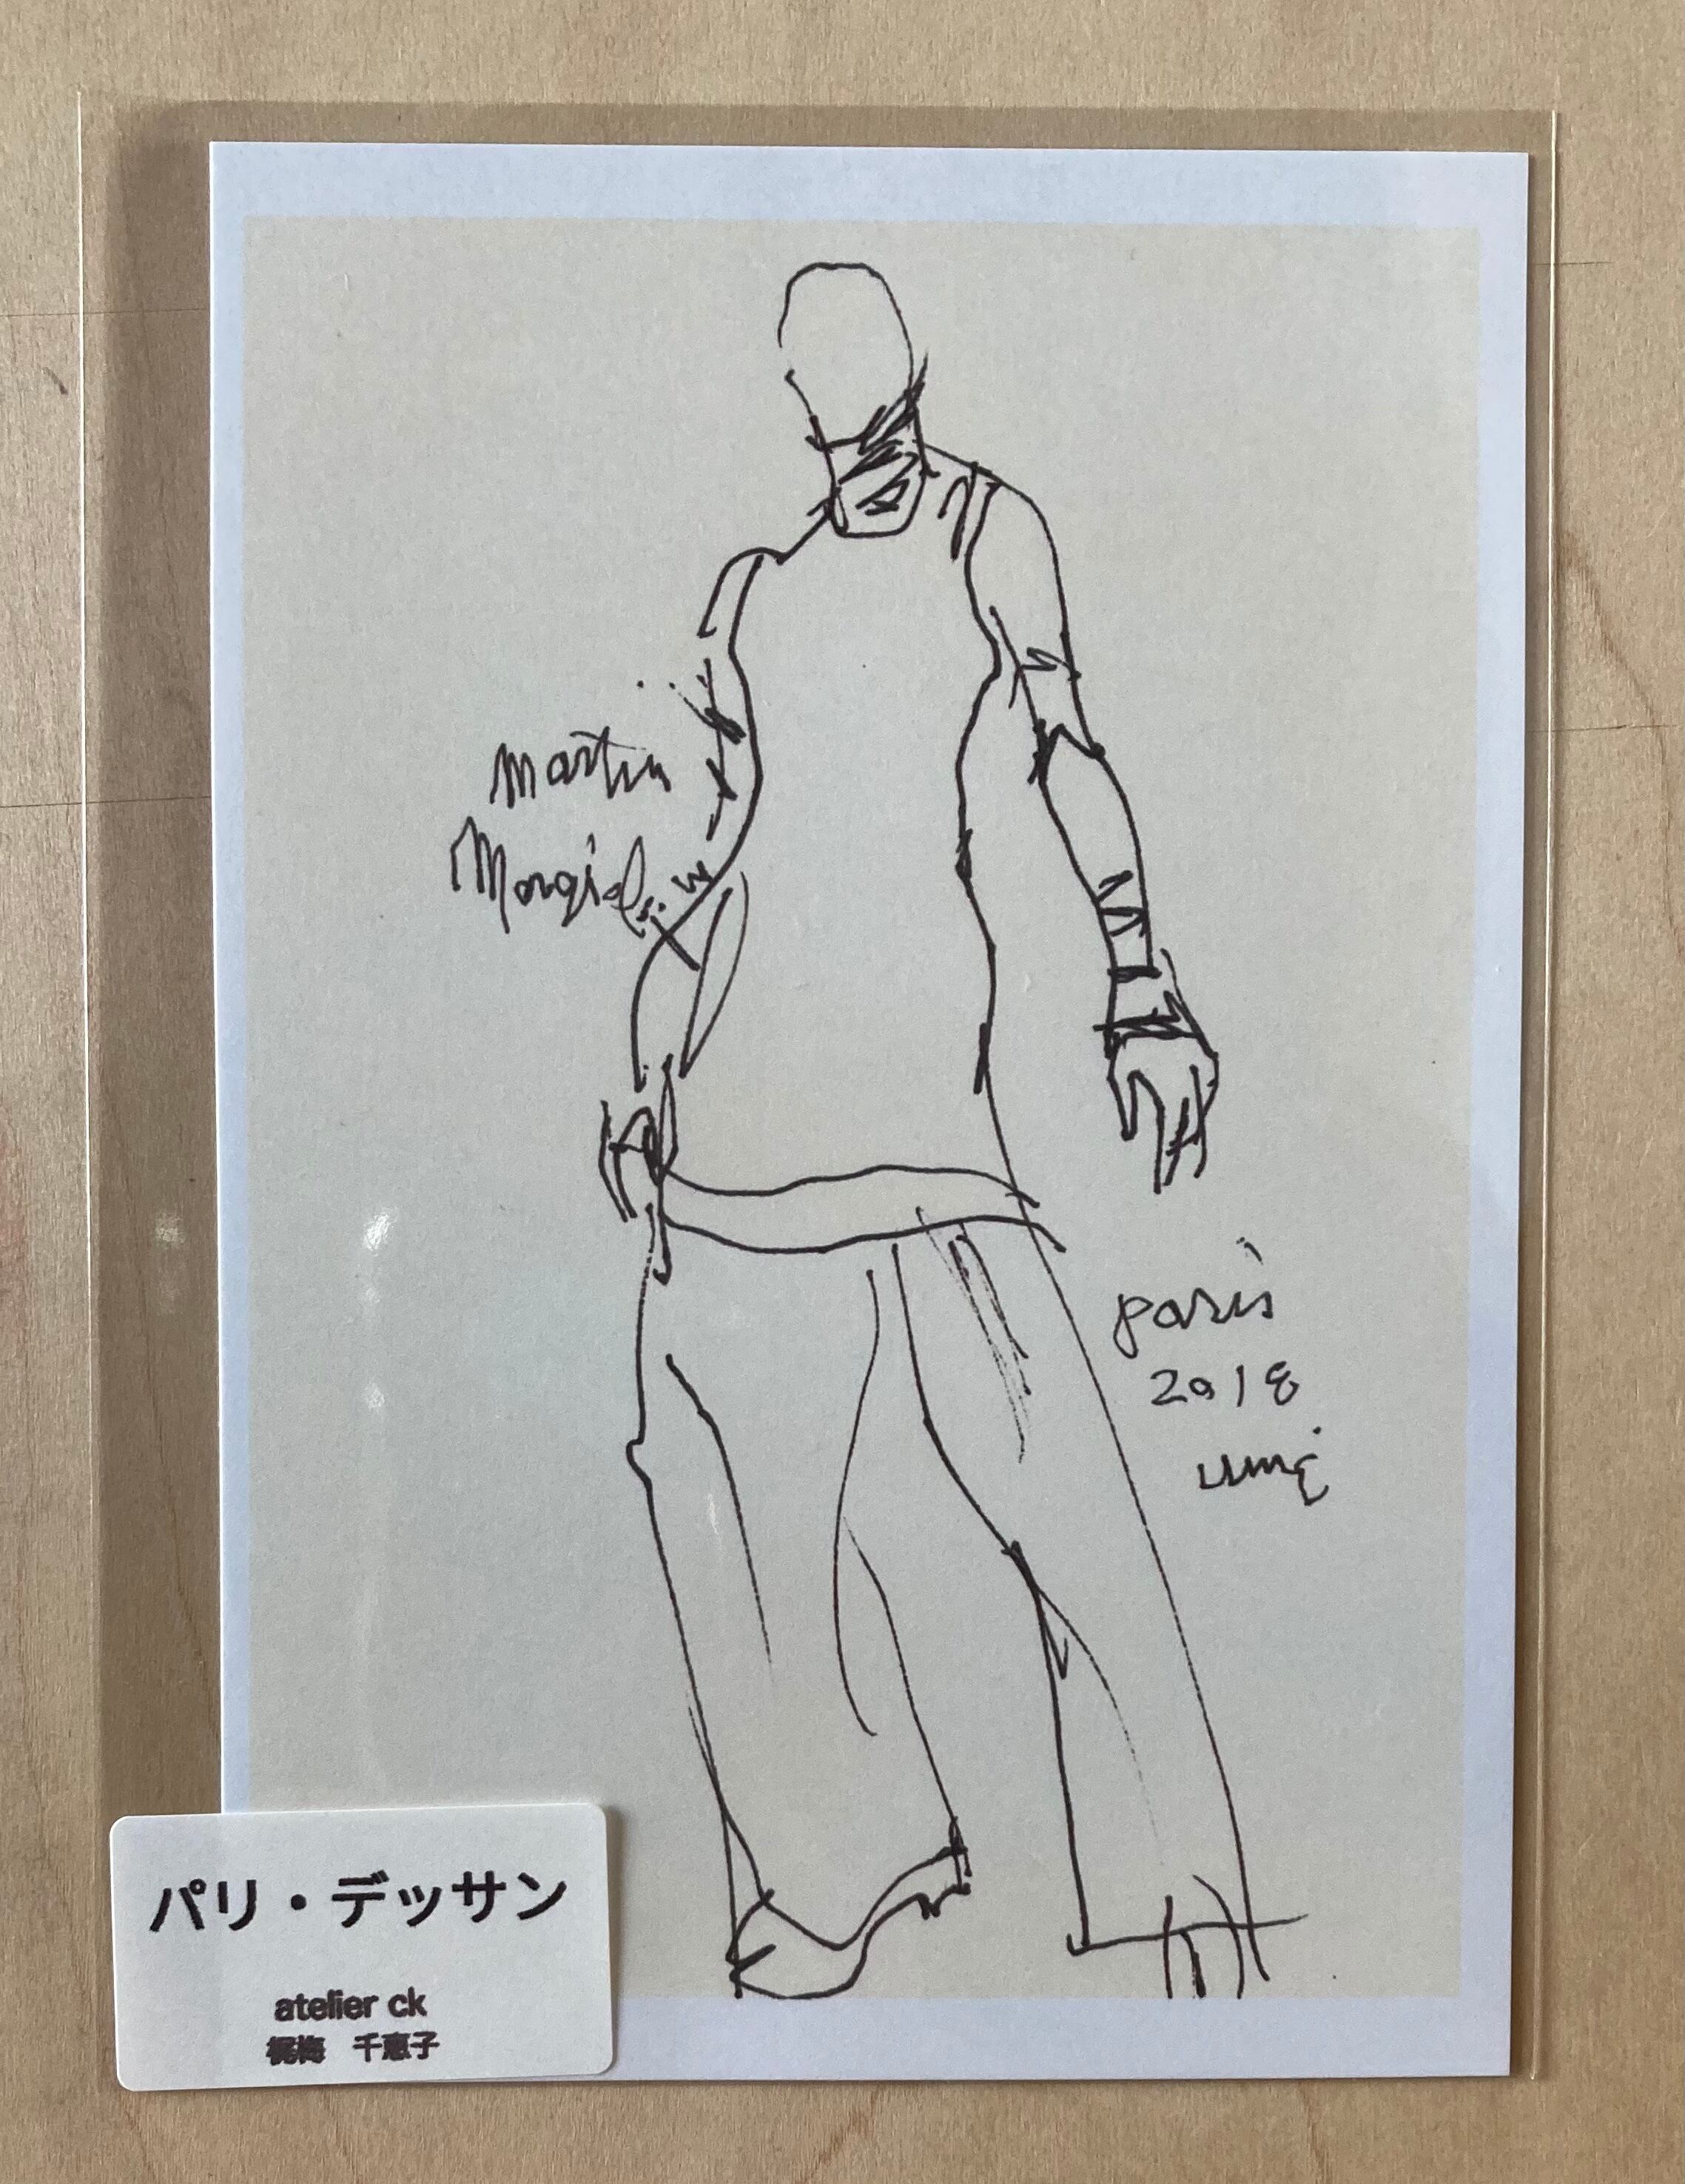 martin
Margiela
paris
2018
umé
パリ・デッサン
atelier ck
梶梅　千恵子